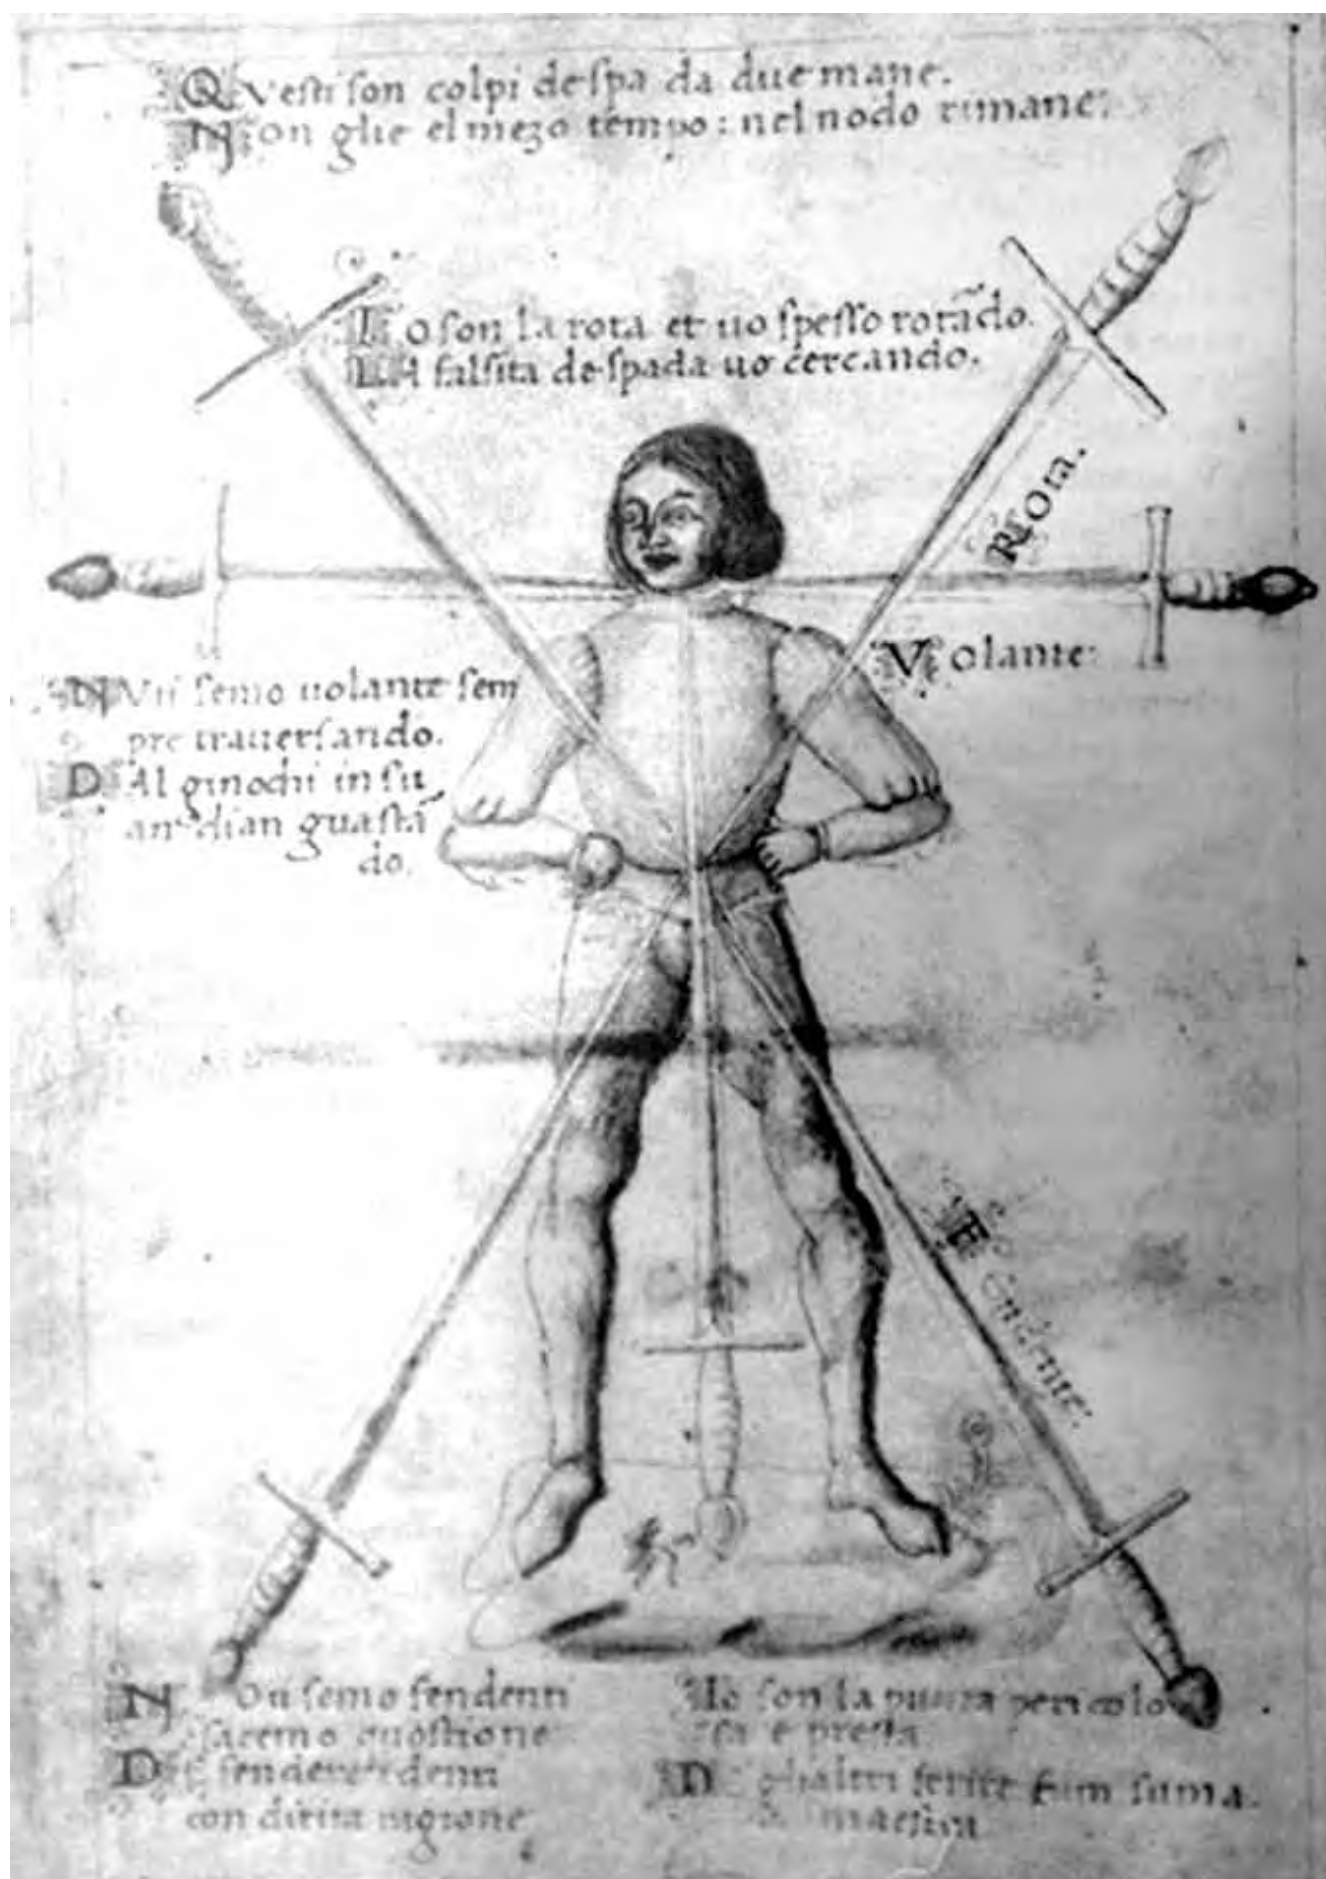 Questi son colpi de spa da due mane.
Non glie el mezo tempo: nel nodo rimane:
Io son la rota et uo spesso rotãdo.
La falsita de spada uo cercando.
Rota.
Volante:
Nuii semo uolante sem
pre trauersando.
Dal ginochi in su
dian guastã
do.
Fendente:
Nou semo fendenti
facemo questione
De fendere denti
con dirita
Io son la punta pericolo
sa e presta
D ghaltri ferire sum suma
maestra